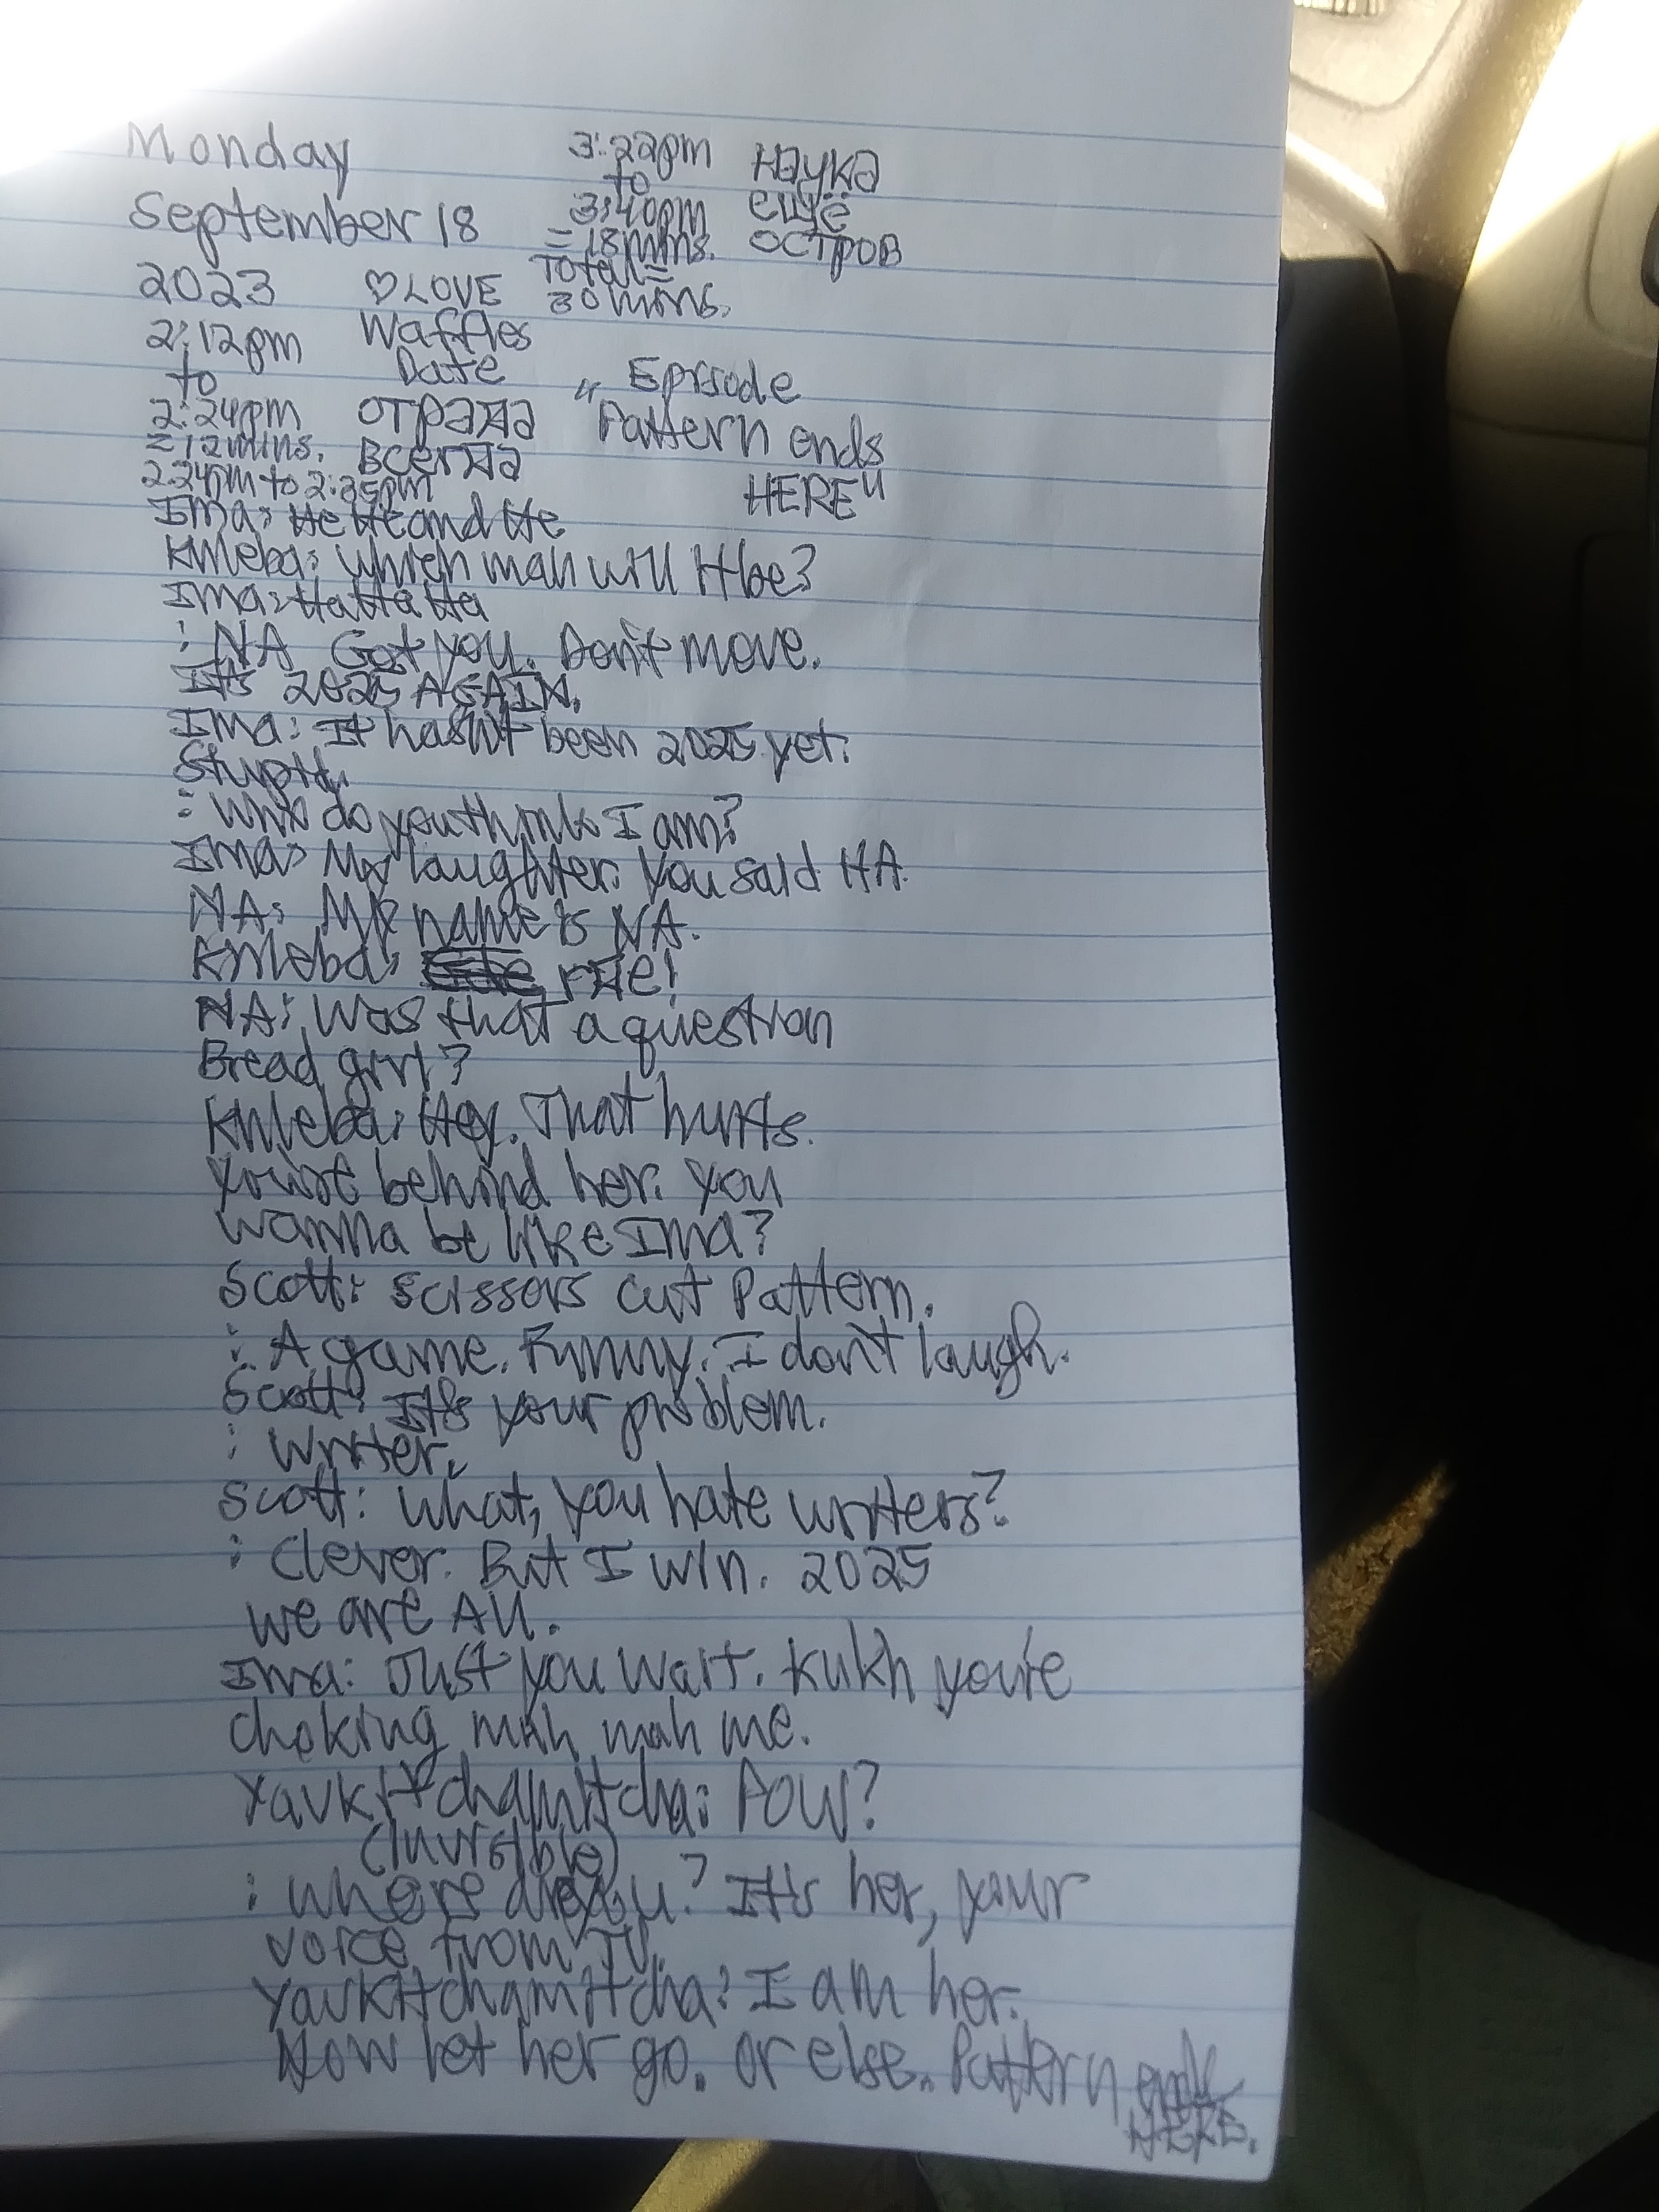 Monday
September 18
2023
2:12pm
to
2:24pm
= 12 mins.
2:24pm to 2:35pm
♡ LOVE
Waffles
Date
отрада
всегда
3:22pm
to
3:40pm
= 18 mins.
Total =
30 mins.
наука
ещё
остров
"Episode
Pattern ends
HERE"
Ima: He He and He.
Khleba: Which man will it be?
Ima: Ha Ha Ha
: NA Got you. Don't move.
It's 2025 AGAIN.
Ima: It hasn't been 2025 yet.
Stupid.
: Who do you think I am?
Ima: My laughter. You said HA.
NA: My name is NA.
Khleba: где!
NA: Was that a question
Bread girl?
Khleba: Hey. That hurts.
You're behind her. You
wanna be like Ima?
Scott: Scissors cut Pattern.
: A game. Funny. I don't laugh.
Scott: It's your problem.
: Writer.
Scott: What, you hate writers?
: Clever. But I win. 2025
we are All.
Ima: Just you wait. Kukh you're
choking muh muh me.
Yavkitchamitcha: POW?
(Invisible)
: Where are you? It's her, your
voice from TV.
Yavkitchamitcha: I am her.
Now let her go. Or else. Pattern ends
HERE.